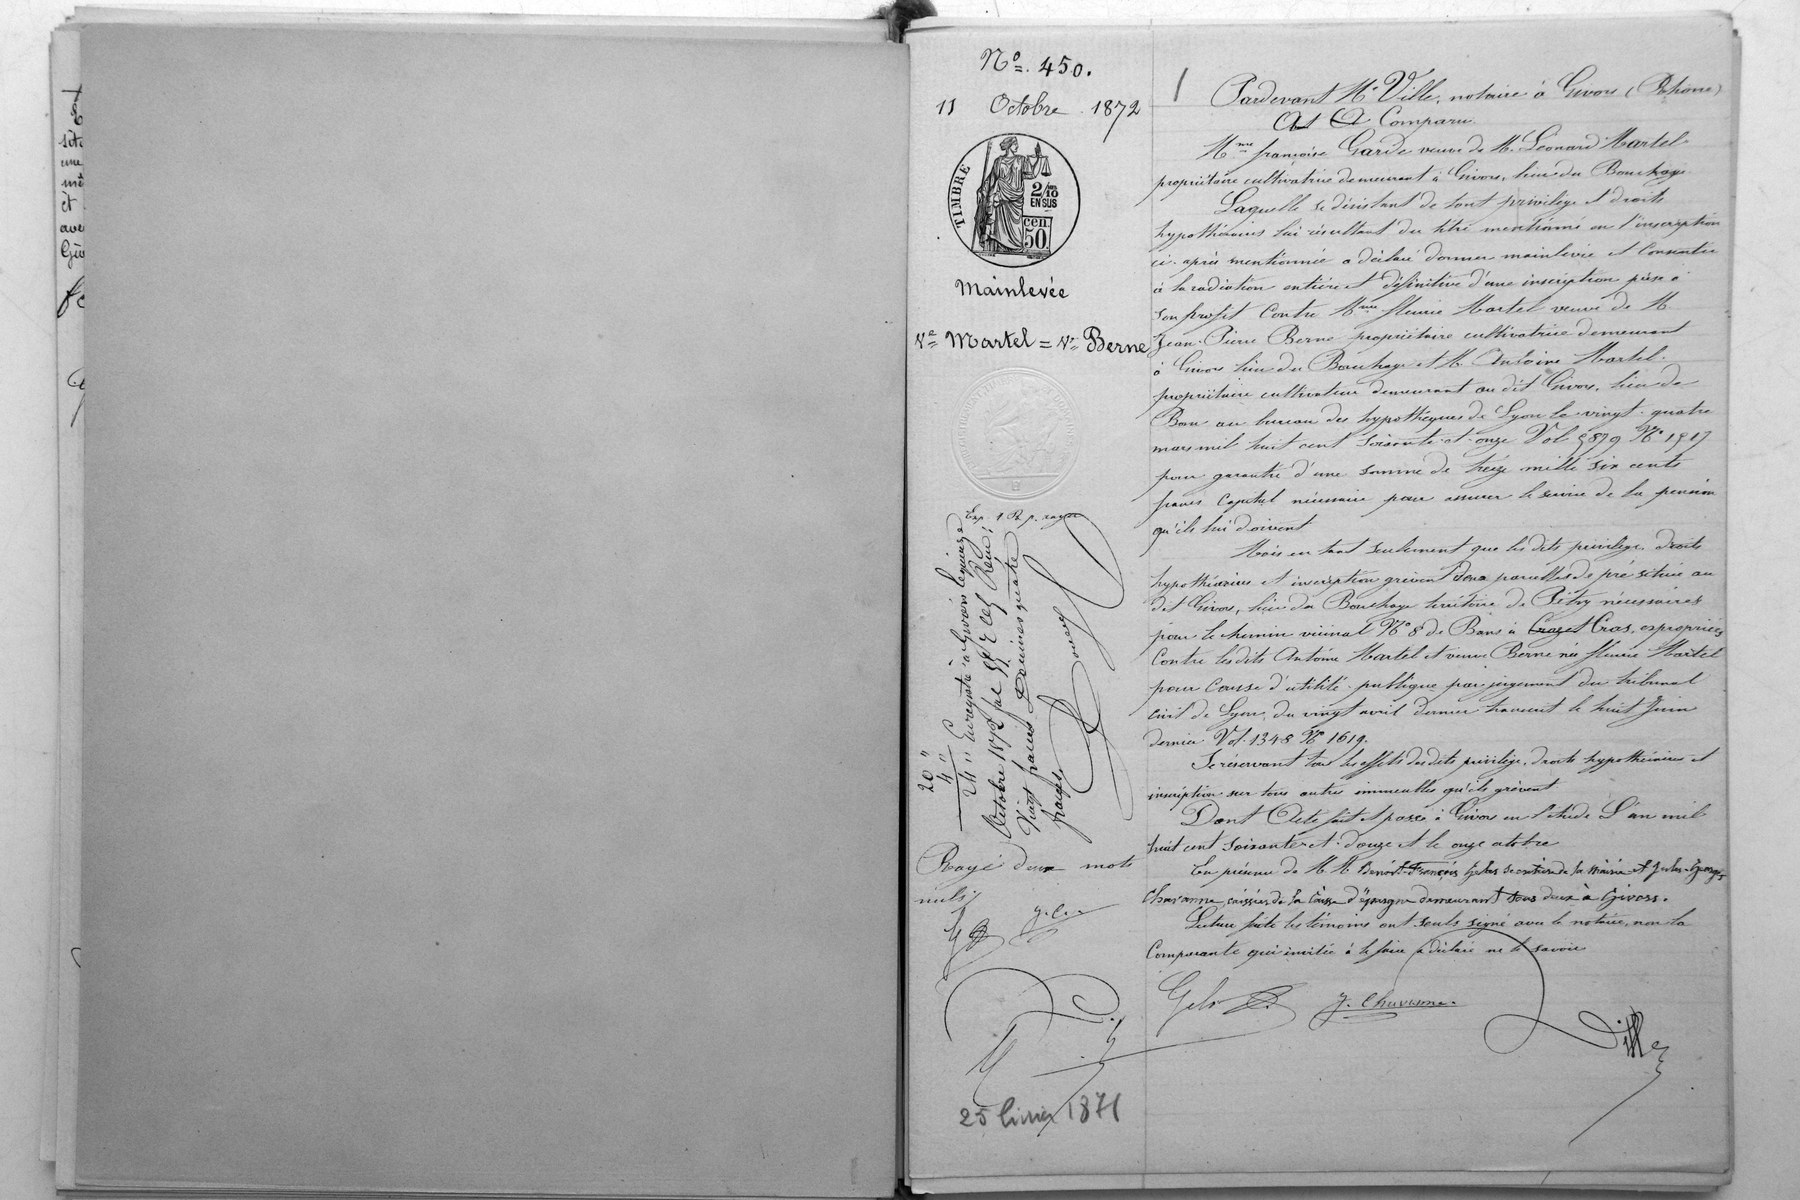 Nº. 450.
11 Octobre 1872
TIMBRE
2/10
EN SUS
cen.
50
Mainlevée
Vᵉ Martel = Vᵉ Berne
Pardevant Mᵉ Ville, notaire à Givors (Rhône)
A Comparu
Mᵐᵉ françoise Garde veuve de M. Léonard Martel
propriétaire cultivatrice demeurant à Givors, lieu du Bouchage
Laquelle se désistant de tout privilège et droits
hypothécaires lui résultant du titre mentionné en l'inscription
ci-après mentionnée a déclaré donner mainlevée et Consentir
à la radiation entière et définitive d'une inscription prise à
son profit Contre Mᵐᵉ fleurie Martel veuve de M.
Jean-Pierre Berne propriétaire cultivatrice demeurant
à Givors lieu du Bouchage et M. Antoine Martel
propriétaire cultivateur demeurant au dit Givors, lieu de
Ban au bureau des hypothèques de Lyon le vingt-quatre
mars mil huit cent soixante-et-onze Vol. 5879 Nº 1517
pour garantie d'une somme de treize mille six cents
francs Capital nécessaire pour assurer le service de la pension
qu'ils lui doivent
Mais en tant seulement que les dits privilège, droits
hypothécaires et inscription grèvent deux parcelles de pré situées au
dit Givors, lieu du Bouchage territoire de nécessaires
pour le chemin vicinal Nº 8 de Bans à Cras, expropriées
Contre lesdits Antoine Martel et veuve Berne née fleurie Martel
pour Cause d'utilité publique par jugement du tribunal
Civil de Lyon, du vingt avril dernier transcrit le huit Juin
dernier Vol. 1348 Nº 1619.
Se réservant tous les effets desdits privilège, droits hypothécaires et
inscription sur tous autres immeubles qu'ils grèvent
Dont Acte fait et passé à Givors en l'étude L'an mil
huit cent soixante-et-douze et le onze octobre
En présence de M.M. Benoît-François Gelas secrétaire de la Mairie et Jules-Georges
Chavanne, caissier de la Caisse d'épargne demeurant tous deux à Givors.
Lecture faite les témoins ont seuls signé avec le notaire, non la
Comparante qui invitée à le faire a déclaré ne le savoir
Gelas J. Chavanne. Ville
20 "
4 "
24 "
Enregistré à Givors le quinze
Octobre 1872
Vingt francs Décimes quatre
francs.
Rayé deux mots
nuls
J.C.
25 1871